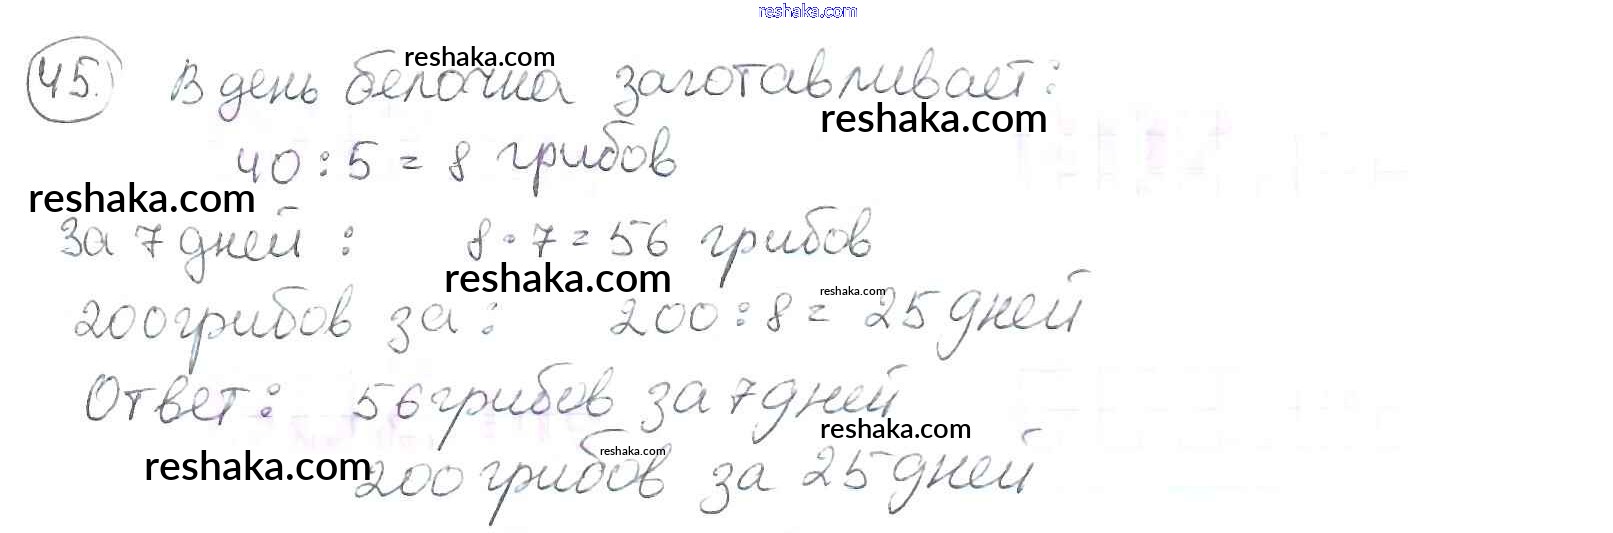 reshaka.com
45. В день белочка заготавливает:
reshaka.com
reshaka.com
40 : 5 = 8 грибов
reshaka.com
За 7 дней : 8 · 7 = 56 грибов
reshaka.com
reshaka.com
200 грибов за : 200 : 8 = 25 дней
Ответ: 56 грибов за 7 дней
reshaka.com
reshaka.com
reshaka.com
200 грибов за 25 дней